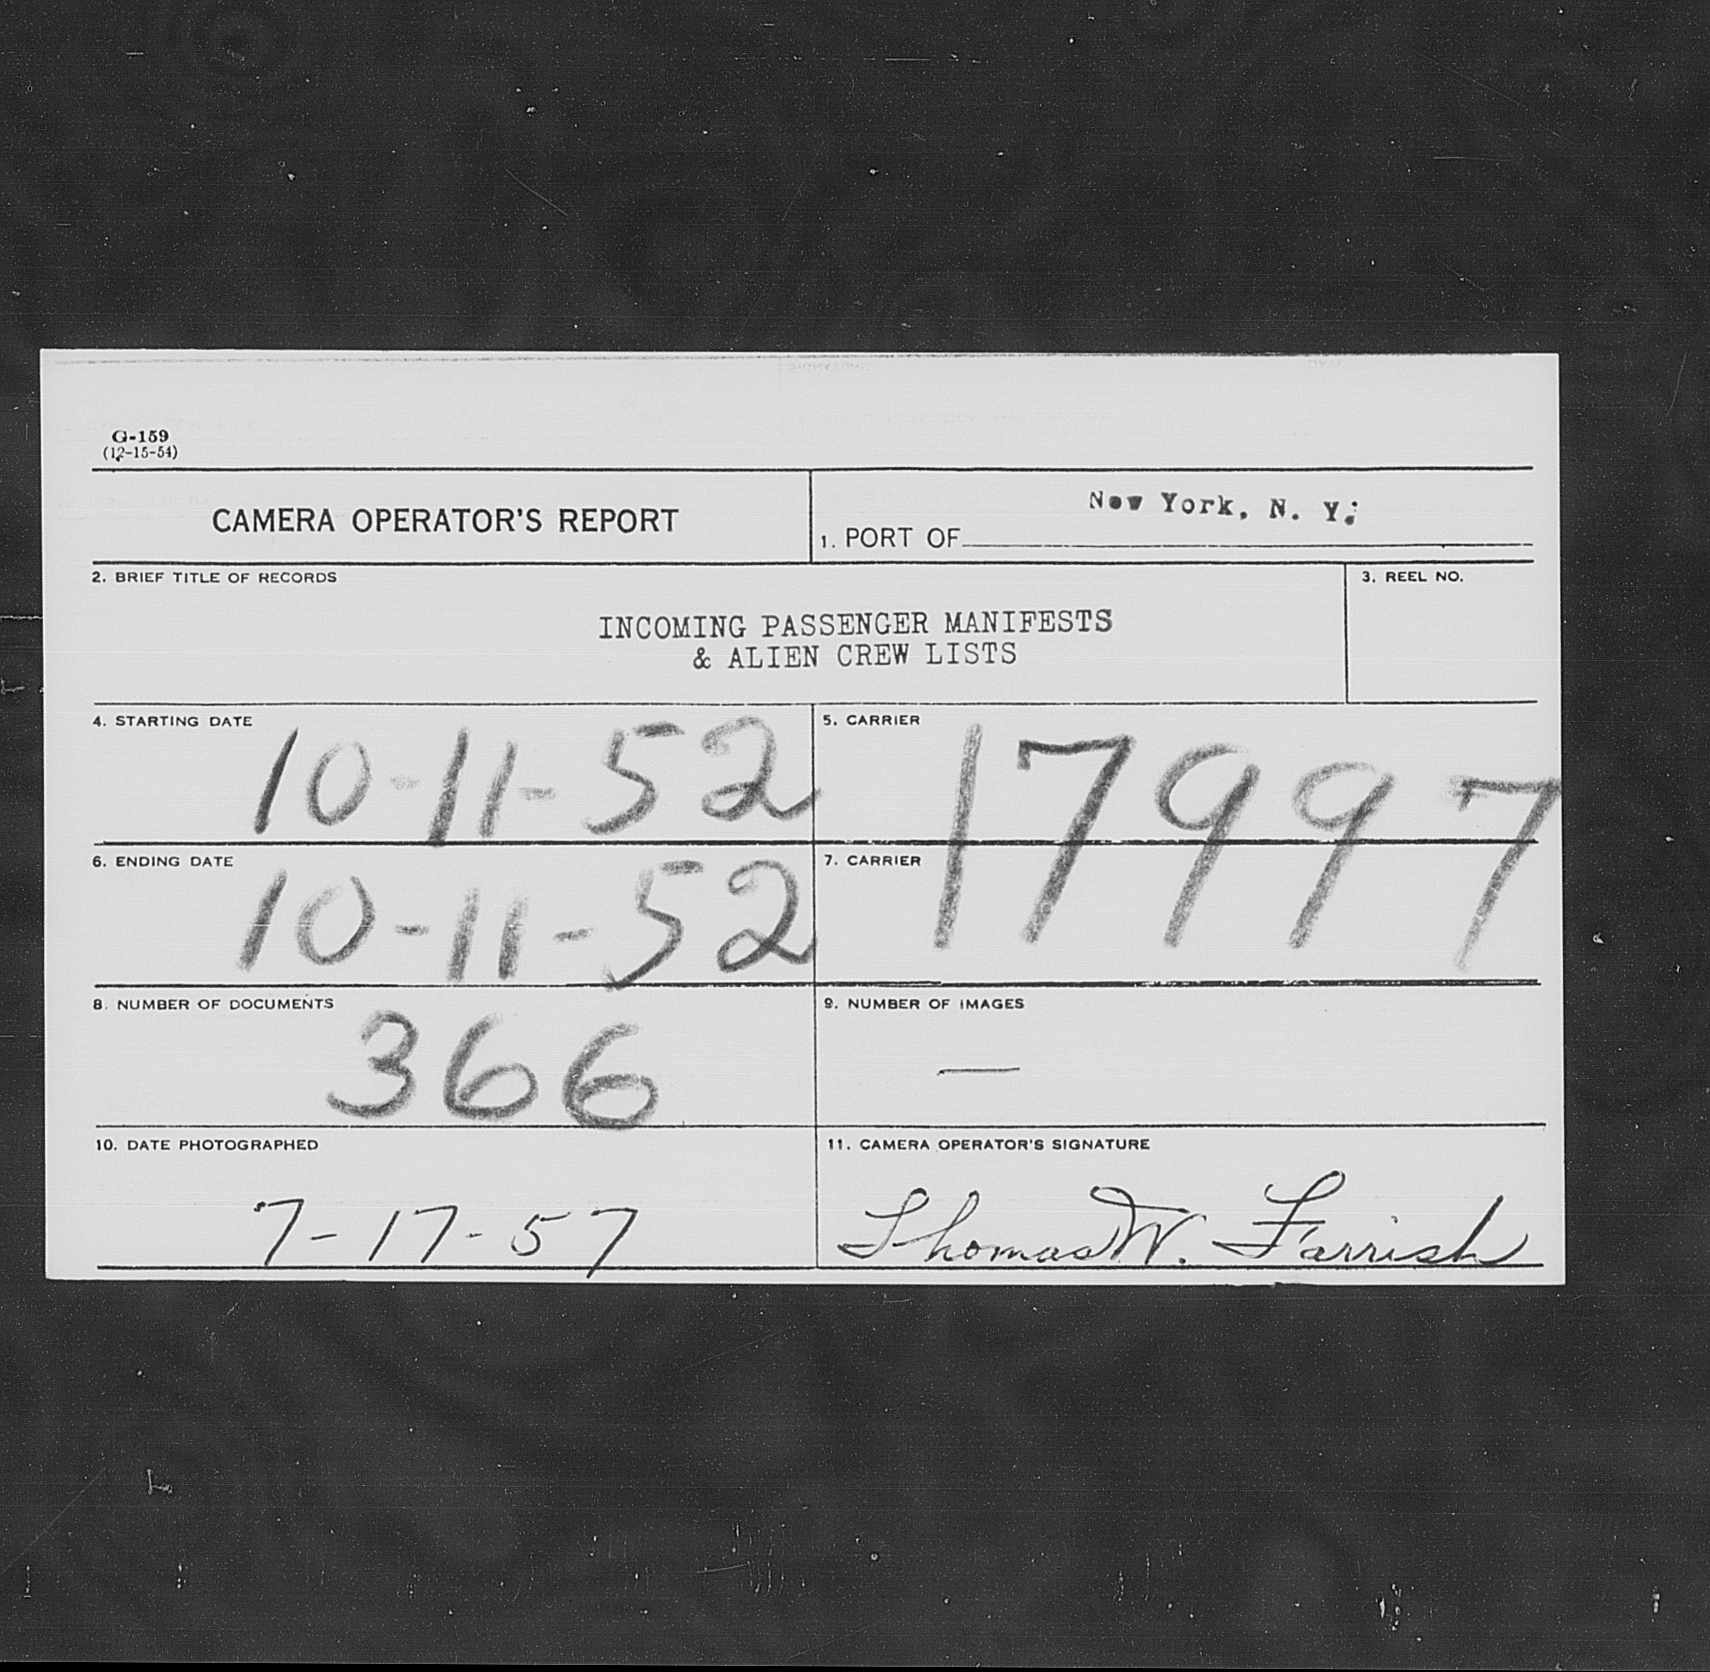 G-159
(12-15-54)
CAMERA OPERATOR'S REPORT
1. PORT OF New York, N. Y.
2. BRIEF TITLE OF RECORDS
INCOMING PASSENGER MANIFESTS
& ALIEN CREW LISTS
3. REEL NO.
4. STARTING DATE
10-11-52
5. CARRIER
17997
6. ENDING DATE
10-11-52
7. CARRIER
8. NUMBER OF DOCUMENTS
366
9. NUMBER OF IMAGES
—
10. DATE PHOTOGRAPHED
7-17-57
11. CAMERA OPERATOR'S SIGNATURE
Thomas W. Farrish